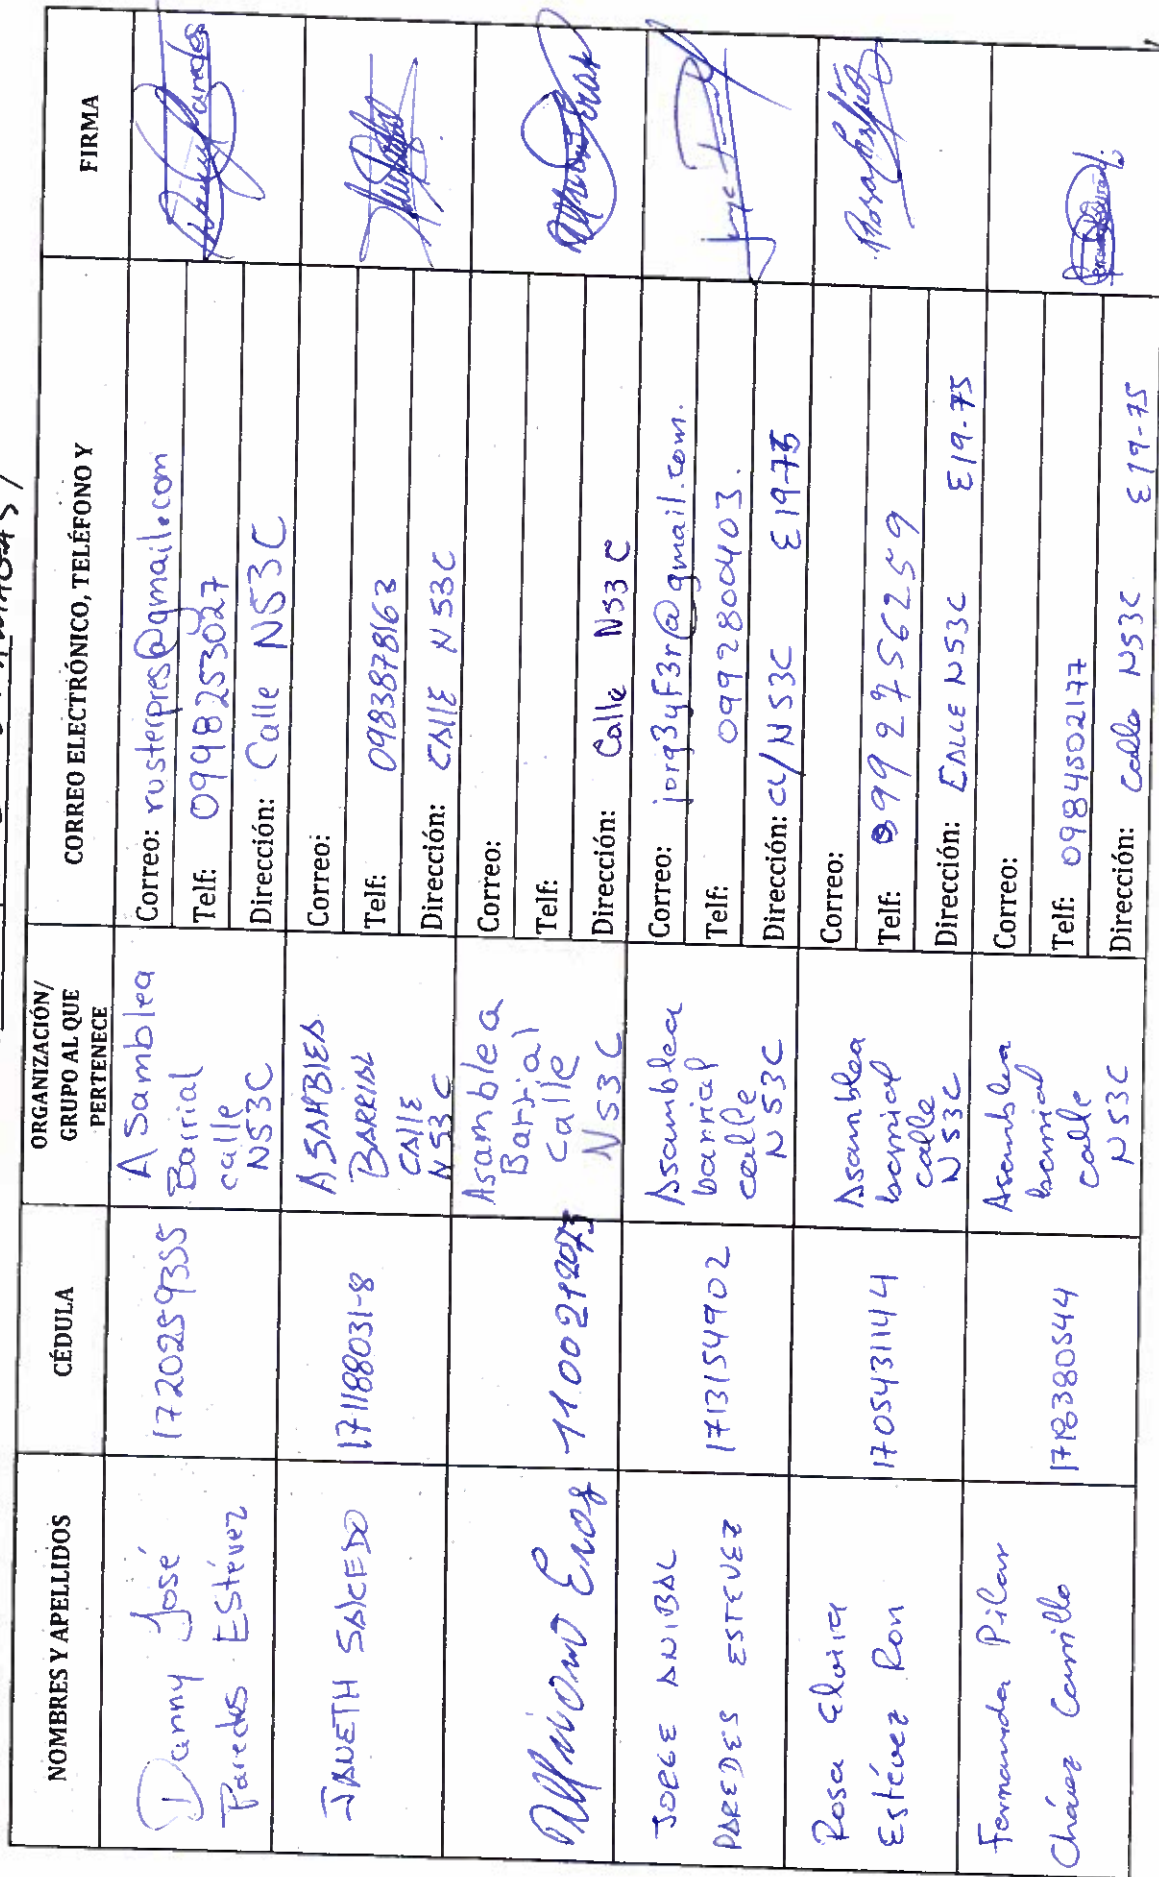 NOMBRES Y APELLIDOS
CÉDULA
ORGANIZACIÓN/
GRUPO AL QUE
PERTENECE
CORREO ELECTRÓNICO, TELÉFONO Y
FIRMA
Danny José
Paredes Estévez
1720259355
ASamblea
Barrial
calle
N53C
Correo: rusterpres@gmail.com
Telf: 0998253027
Dirección: Calle N53C
JANETH SALCEDO
171188031-8
ASAMBLEA
BARRIAL
CALLE
N53C
Correo:
Telf: 0983878163
Dirección: CALLE N53C
Asamblea
Barrial
calle
N53C
Correo:
Telf:
Dirección: Calle N53C
JORGE ANIBAL
PAREDES ESTEVEZ
1713154902
Asamblea
barrial
calle
N53C
Correo: jorg3yf3r@gmail.com.
Telf: 0992800403.
Dirección: cl/N53C E19-75
Rosa Elvira
Estévez Ron
1705431144
Asamblea
barrial
calle
N53C
Correo:
Telf: 0992756259
Dirección: CALLE N53C E19-75
Fernanda Pilar
Chávez Carrillo
1718380544
Asamblea
barrial
calle
N53C
Correo:
Telf: 0984502177
Dirección: Calle N53C E19-75